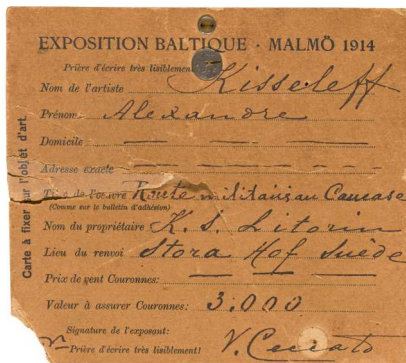 EXPOSITION BALTIQUE · MALMÖ 1914
Prière d'écrire très lisiblement
Nom de l'artiste Kisseleff
Prénom: Alexandre
Domicile — — — —
Adresse exacte — — — —
Titre de l'œuvre Route militaire au Caucase
(Comme sur le bulletin d'adhésion)
Nom du propriétaire K. S. Litorin
Lieu du renvoi Stora Hof Suède
Prix de vent Couronnes: — — —
Valeur à assurer Couronnes: 3.000
Signature de l'exposant:
Prière d'écrire très lisiblement! V.
Carte à fixer sur l'objet d'art.